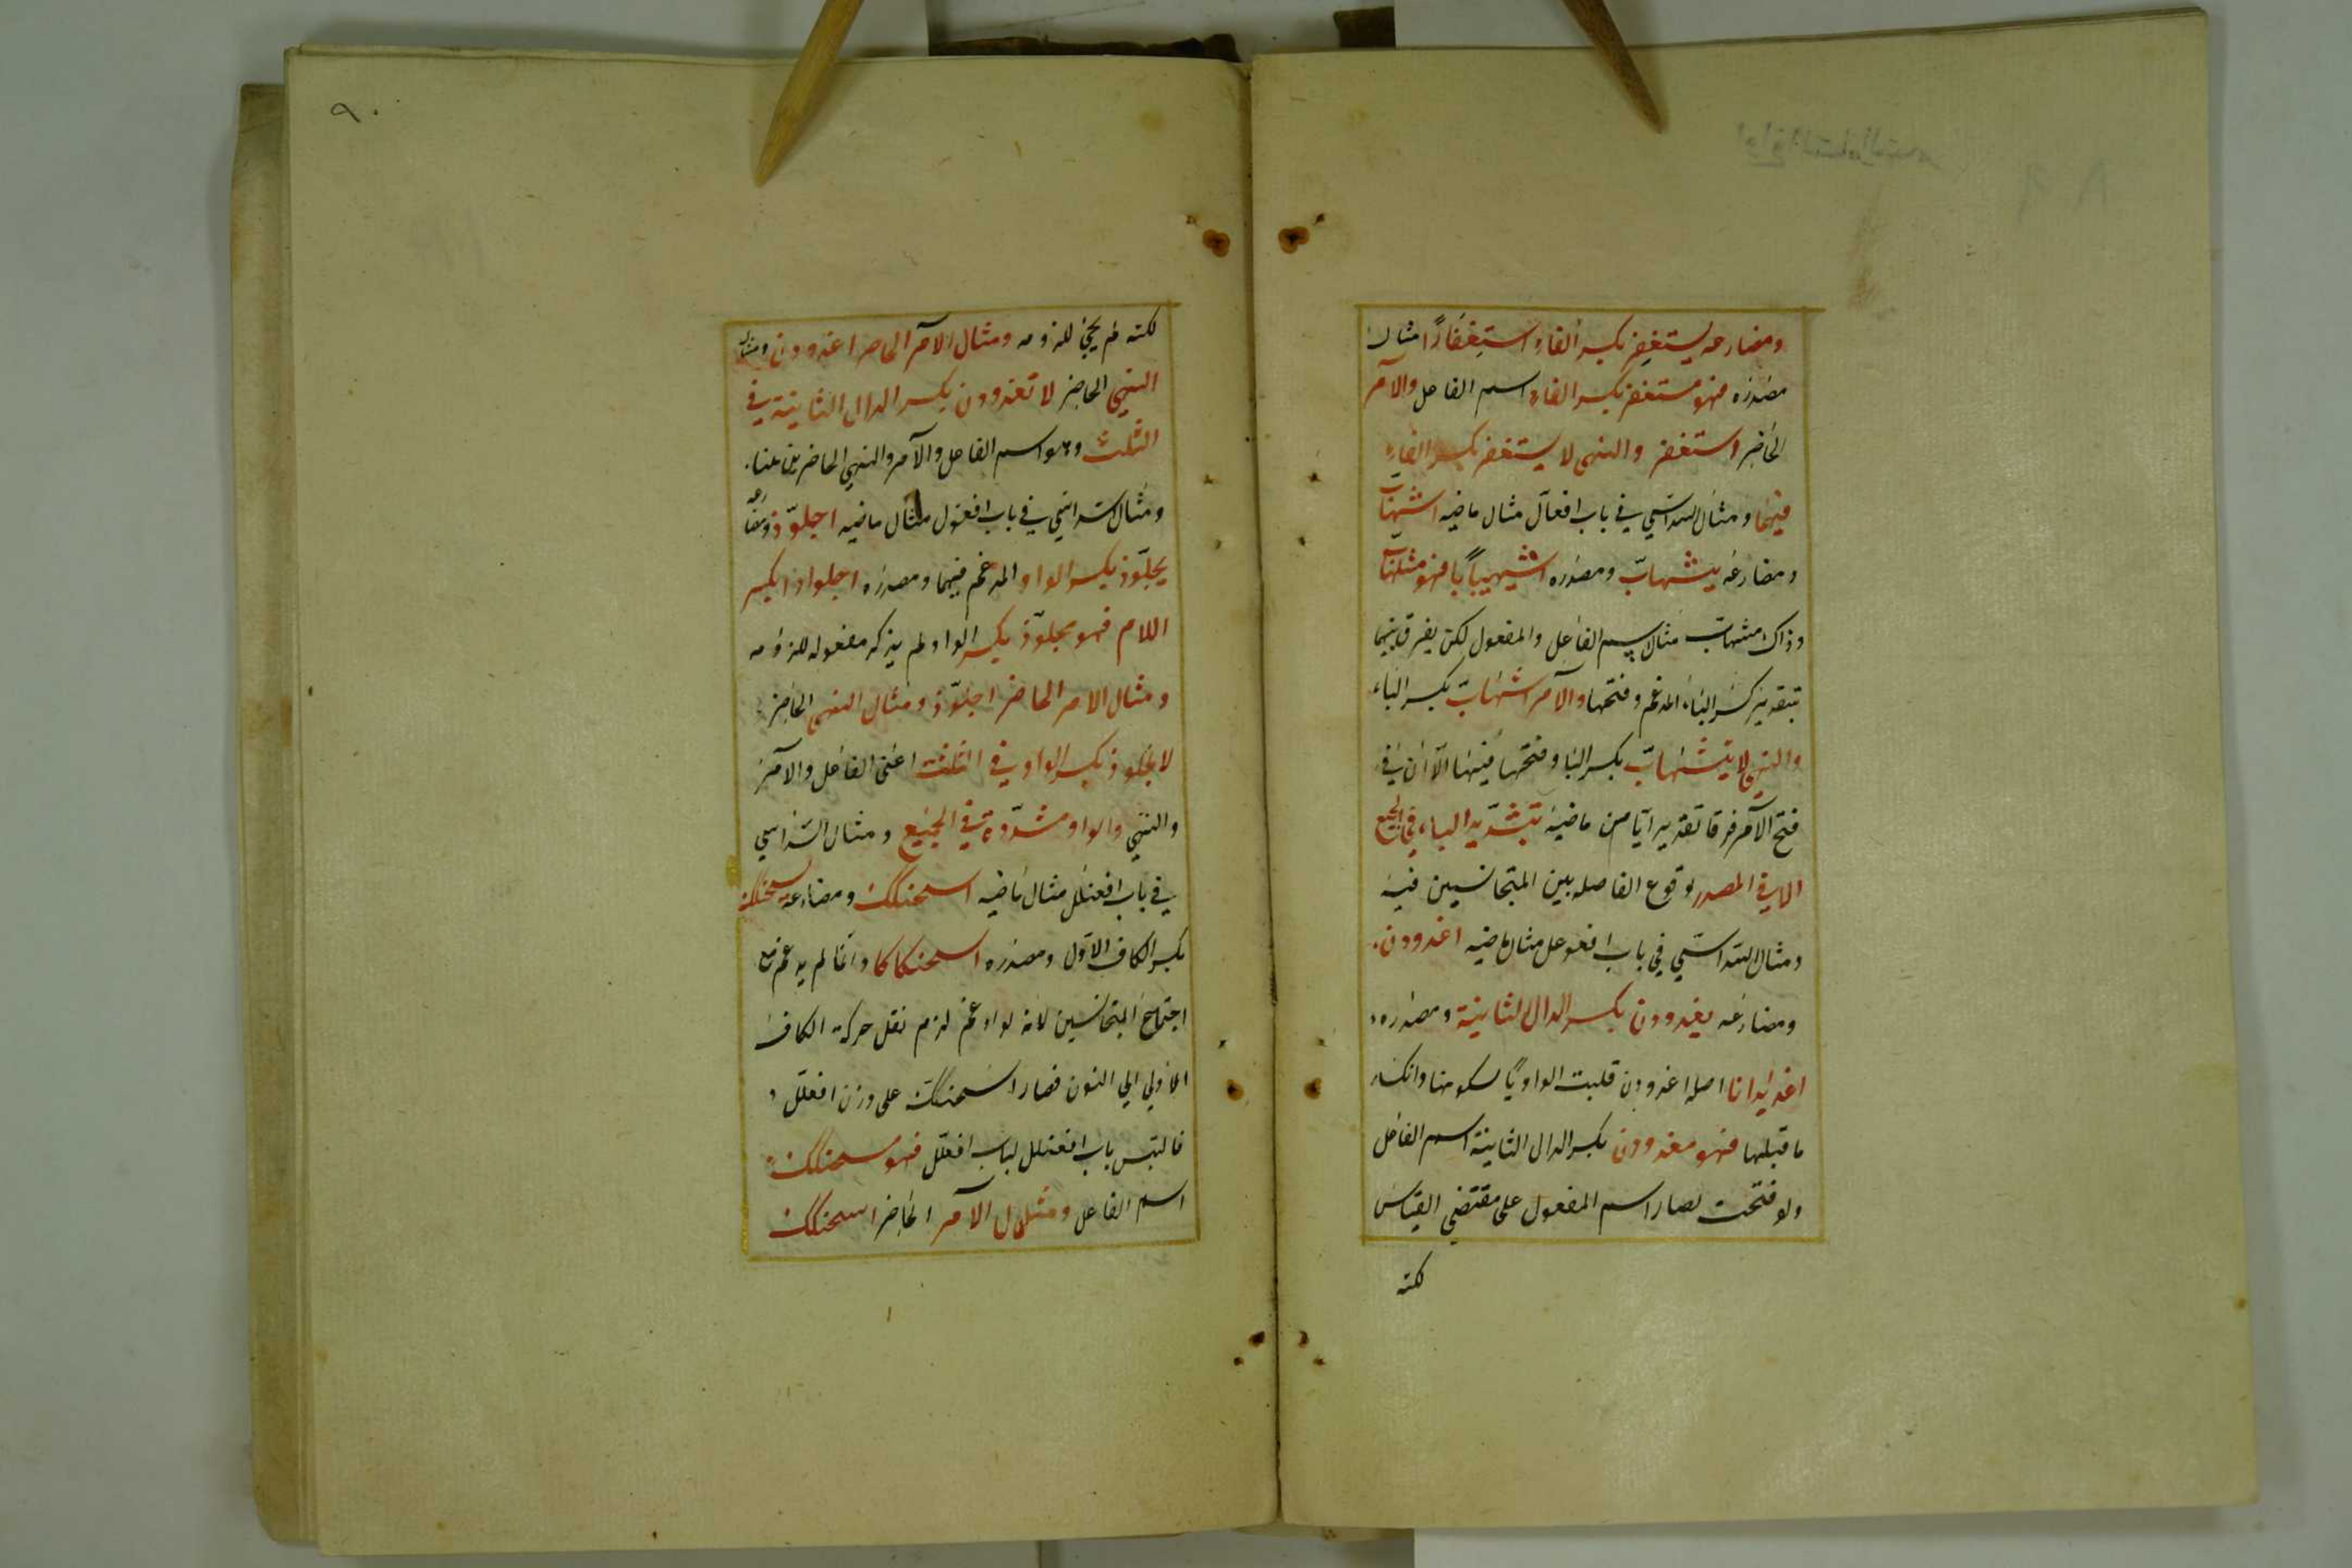 ومضارعه يستغفر بكسر الفاء استغفارًا مثال
مصدره فهو مستغفر بكسر الفاء اسم الفاعل والامر
الحاضر استغفر والنهى لا يستغفر بكسر الفاء
فيهما ومثال السداسي في باب افعالّ مثال ماضيه اشهابّ
ومضارعه يشهابّ ومصدره اشهيبابا فهو مشهابّ
وذاك مشهابّ مثال اسم الفاعل والمفعول لكن يفرق بينهما
بتقدير كسر الباء المدغم وفتحها والامر اشهابّ بكسر الباء
والنهى لا يشهابّ بكسر الباء وفتحها فيهما الا ان في
فتح الامر فرقا تقديرايّا من ماضيه بتشديد الباء في الجميع
الا في المصدر لوقوع الفاصله بين المتجانسين فيه
ومثال السداسي في باب افعوعل مثال ماضيه اغدودن
ومضارعه يغدودن بكسر الدال الثانية ومصدره
اغديدانا اصله اغدودن قلبت الواو يا لسكونها وانكسار
ما قبلها فهو مغدودن بكسر الدال الثانية اسم الفاعل
ولو فتحت لصار اسم المفعول على مقتضى القياس
لكنه
٩٠
لكنه لم يجئ للزومه ومثال الامر الحاضر اغدودن ومثال
النهي الحاضر لا تغدودن بكسر الدال الثانية في
الثلث وهو اسم الفاعل والامر والنهي الحاضرين
ومثال السداسي في باب افعوّل مثال ماضيه اجلوّذ ومضارعه
يجلوّذ بكسر الواو المدغم فيهما ومصدره اجلواذا بكسر
اللام فهو مجلوّذ بكسر الواو لم يذكر مفعوله للزومه
ومثال الامر الحاضر اجلوّذ ومثال النهى الحاضر
لا تجلوذ بكسر الواو في الثلث اعنى الفاعل والامر
والنهي والواو مشدّدة في الجميع ومثال السداسي
في باب افعنلل مثال ماضيه اسحنكك ومضارعه يسحنكك
بكسر الكاف الاول ومصدره اسحنكاكا وانما لم يدغم مع
اجتماع المتجانسين لانه لو ادغم لزم نقل حركة الكاف
الاولي الي النون فصار اسحنكّ على وزن افعللّ
فالتبس باب افعنلل لباب افعللّ فهو مسحنكك
اسم الفاعل ومثال الامر الحاضر اسحنكك